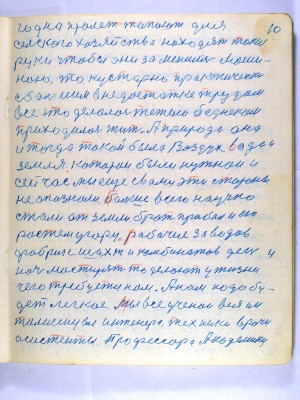 10
года пролет топают для
селского хозяйства находят такие
руки чтобы они заменили маши-
ною, то кустарно практически
с вами им в недостатке трудом
все то делолос тежело беднеком
приходилос жит. А природа она
и тогда такой была Воздух вода и
земля. которои были нужнои и
сейчас мы еще с вами эти стороны
не опознали, болше всего научно
стали от земли брат прибыл и ею
ростем у гору, рабочие заводов
фабрик шахт и комбинатов ден и
ноч мастирят то делают у жизни
чего требуется нам. А нам надо бу-
дет легкое Мы все ученои вся ин
женера, техники врачи
асистенты Профессора Академики